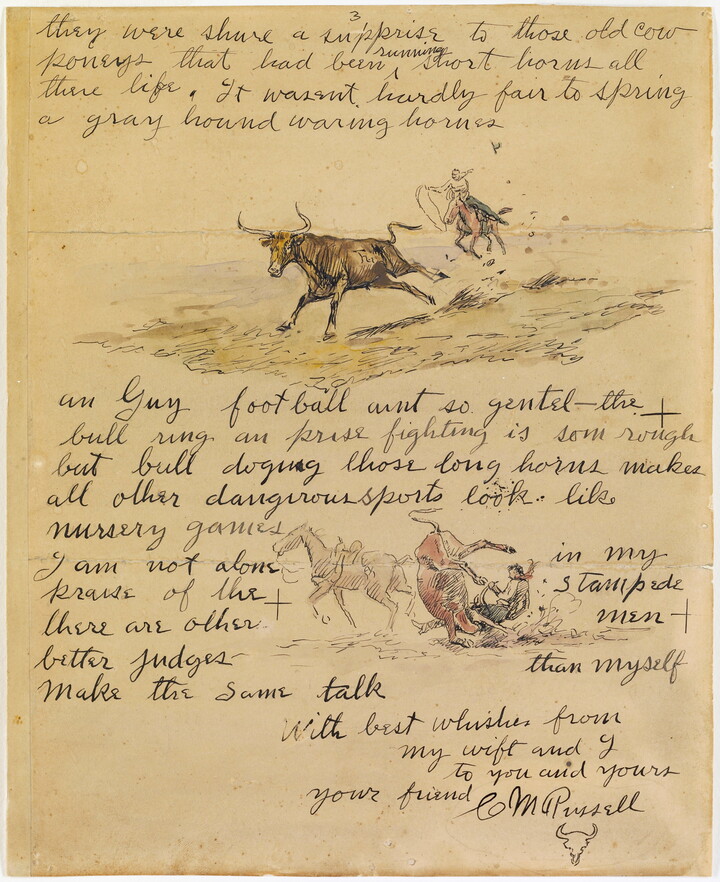 3
they were shure a supprise to those old cow
poneys that had been running short horns all
there life. It wasent hardly fair to spring
a gray hound waring hornes
an Guy foot ball aint so gentel—the
bull ring an prise fighting is som rough
but bull doging those long horns makes
all other dangirous sports look like
nursery games
I am not alone in my
praise of the stampede
there are other men
better judges than myself
Make the same talk
With best whishes from
my wift and I
to you and yours
your friend C M Russell